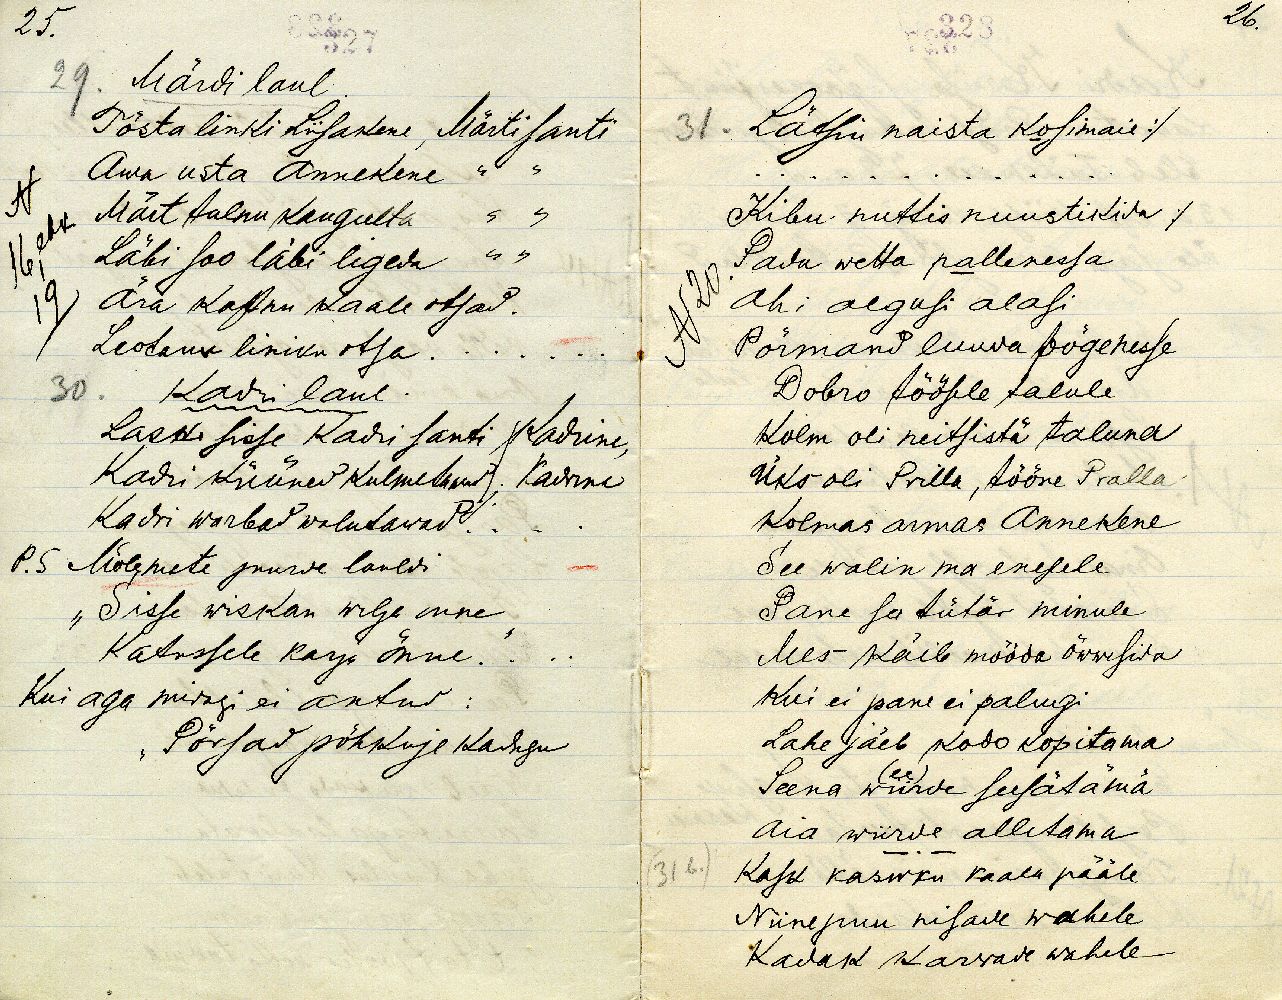 25.
327
29. Märdi laul.
Tösta linki Liisakene, Märti santi
Awa usta Annekene " "
Märt tulnu kaugulta " "
Läbi soo läbi ligeda " "
Ära kastnu kaale otsad.
Leotanu liniku otsa . . . . . . .
30. Kadri laul.
Laske sisse Kadri santi, Kadrine,
Kadri küüned külmetawad, Kadrine
Kadri warbad walutawad . . .
P.S Mölemete juurde lauldi
"Sisse wiskan wilja önne
Katussele karja önne." . . .
Kui aga midagi ei antud :
"Pörsad pöhkuje kadugu
N 16 ehk 19
328
26.
31. Lätsin naista kosimaie :/
. . . . . . . . . . . .
Kibu nuttis nuustikida :/
Pada wetta pallenessa
N 20.
Ahi aegusi alasi
Pörmand luuda pögenesse
Dobro töösele talule
Kolm oli neitsistä taluna
Üks oli Prilla, tööne Pralla
Kolmas armas Annekene
See walin ma enesele
Pane sa tütär minule
Mes käib mööda öwwesida
Kui ei pane ei palugi
Lahe jäeb kodo kopitama
Seena wiirde (ee) seesätämä
Aia wiirde alletama
(31 b.) Kask kaswku kaala pääle
Niinepuu nisade wahele
Kadak karwade wahele